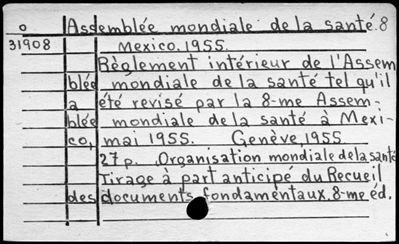 o Assemblée mondiale de la santé.8
31908 Mexico.1955.
Règlement intérieur de l'Assem
blée mondiale de la santé tel qu'il
a été revisé par la 8-me Assem-
blée mondiale de la santé à Mexi-
co, mai 1955. Genève, 1955
27 p. Organisation mondiale de la santé
Tirage à part anticipé du Recueil
des documents fondamentaux. 8-me éd.